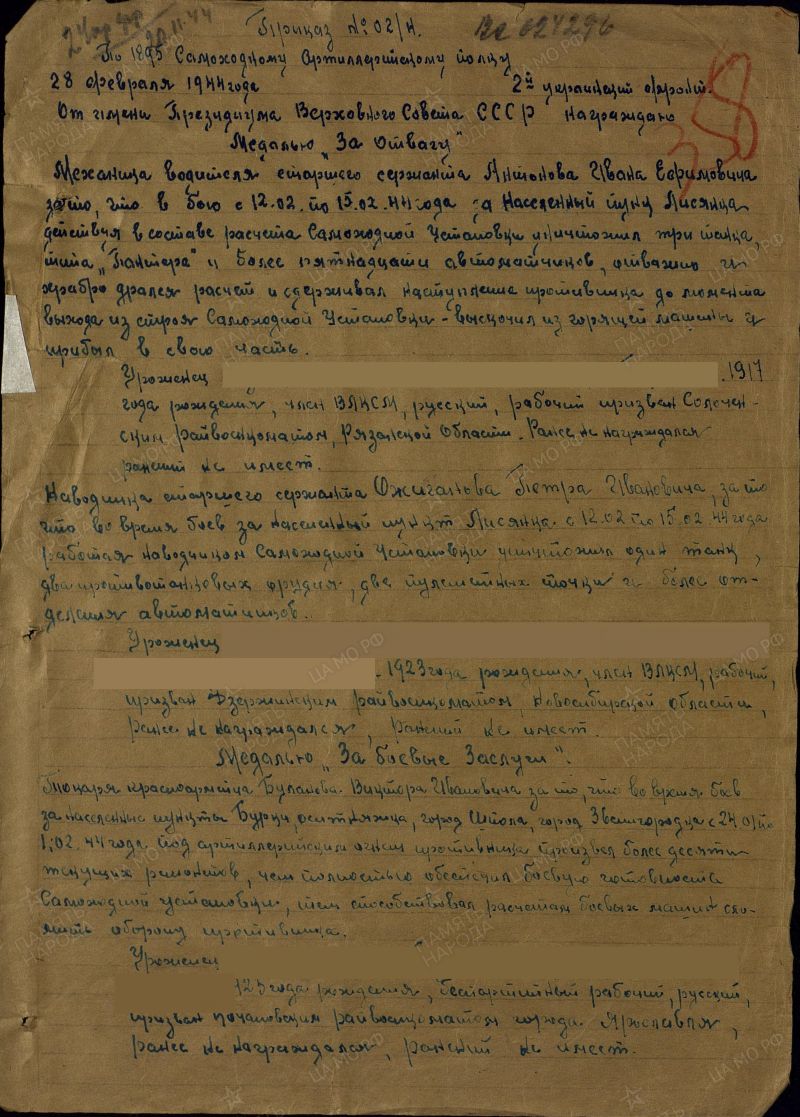 Приказ № 02/н.
По 1895 Самоходному Артиллерийскому полку
28 февраля 1944 года 2й украинский фронт.
От имени Президиума Верховного Совета СССР награждаю
Медалью „За Отвагу"
Механика водителя старшего сержанта Антонова Ивана Ефимовича
за то, что в бою с 12.02. по 15.02.44 года за населенный пункт Лисянка
действуя в составе расчета Самоходной Установки уничтожил три танка,
типа „Пантера" и более пятнадцати автоматчиков, отважно и
храбро дрался расчет и сдерживал наступление противника до момента
выхода из строя Самоходной Установки - выскочил из горящей машины и
прибыл в свою часть.
Уроженец 1917
года рождения, член ВЛКСМ, русский, рабочий призван Солочен-
ским райвоенкоматом, Рязанской Области. Ранее не награждался
ранений не имеет.
Наводчика старшего сержанта Ожиганова Петра Ивановича, за то
что во время боев за населенный пункт Лисянка с 12.02 по 15.02.44 года
работая наводчиком Самоходной Установки уничтожил один танк,
два противотанковых орудия, две пулеметных точки и более от-
деления автоматчиков.
Уроженец
1923 года рождения, член ВЛКСМ, рабочий,
призван Дзержинским райвоенкоматом, Новосибирской области,
ранее не награждался, ранений не имеет.
Медалью „За боевые Заслуги".
Токаря красноармейца Буланова Виктора Ивановича за то, что во время боев
за населенные пункты Бурки, оситняжка, город Шпола, город Звенигородка с 24.01 по
1.02.44 года под артиллерийским огнем противника произвел более десяти
текущих ремонтов, чем полностью обеспечил боевую готовность
Самоходной установки, тем способствовал расчетам боевых машин сло-
мить оборону противника.
Уроженец
123 года рождения, беспартийный рабочий, русский,
призван райвоенкоматом города Ярославля,
ранее не награждался, ранений не имеет.